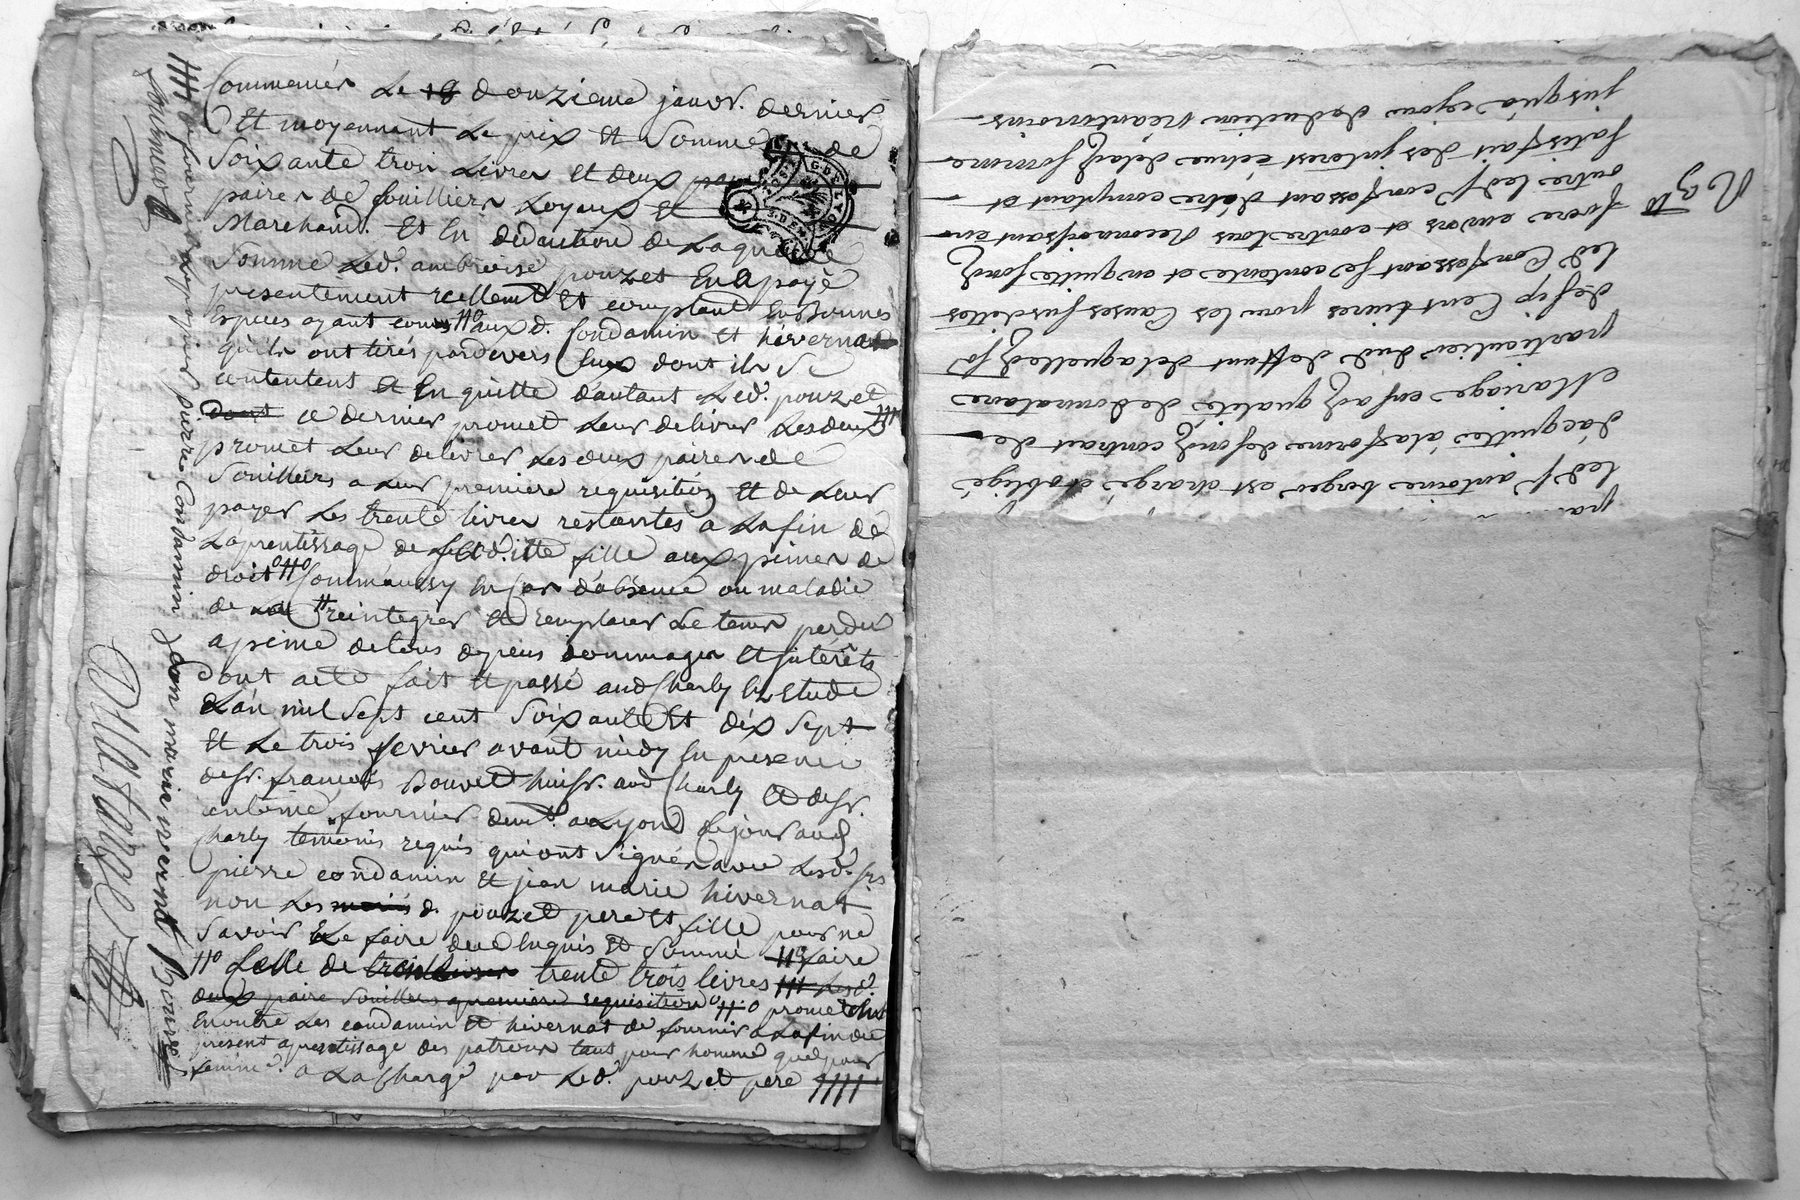 Commencés Le 18 douzieme janvr. dernier
Et moyennant Le prix Et Somme de
Soixante trois Livres Et deux
paires de souilliers Loyaux Et
Marchand. Et En deduction de Laquelle
Somme Led. ambroise pouzet En a payé
presentement reellemt. Et comptant En bonnes
Especes ayant cours #° aux d. Condamin Et hivernat
qu'ils ont tirés pardevers Eux dont ils Se
contentent Et En quitte d'autant Led. pouzet
dont ce dernier promet Leur delivrer Les deux
promet Leur delivrer Les deux paires de
Souilliers a Leur premiere requisition Et de Leur
payer Les trente livres restantes a La fin de
L'aprentissage de fille aux peines de
droit #° Comm'aussy En Cas d'absence ou maladie
de reintegrer Et remplacer Le tems perdu
a peine de tous depens dommages Et interêts
dont acte fait Et passé aud Charly En Etude
L'an mil Sept cent Soixante Et dix Sept
Et Le trois fevrier avant midy En presence
de Sr. francois Bouvet huisr. aud Charly Et de Sr.
antoine fournier demt. a Lyon de jour aud
Charly temoins requis qui ont Signés avec Lesd. Srs
pierre condamin Et jean marie hivernat
non Les d. pouzet pere Et fille pour ne
Savoir Le faire de ce Enquis Et Sommé faire
#° Celle de trente trois livres
deux paire Souilliers premiere requisition #° promettent
En outre Les condamin Et hivernat de fournir a La fin du
present aprentissage des patrons tant pour homme que pour
femme. a La Charge par Led. pouzet pere
de fournir
fournier
pierre Condamin Jean marie ivernat Bouvet
par
led Sr antoine berger est chargé et obligé
d'acquitter a la forme de son contrat de
Mariage en sad qualité de donnataire
particulier dud deffunt de laquelle
de sept Cent livres pour les Causes susdittes
led Confessant se contente et en quitte sond
frere envers et contre tous Reconnoissant en
outre led Sr confessant d'être comptant et
satisfait des interest echus de lad somme
jusqu'a ce jour deduction Néantmoins